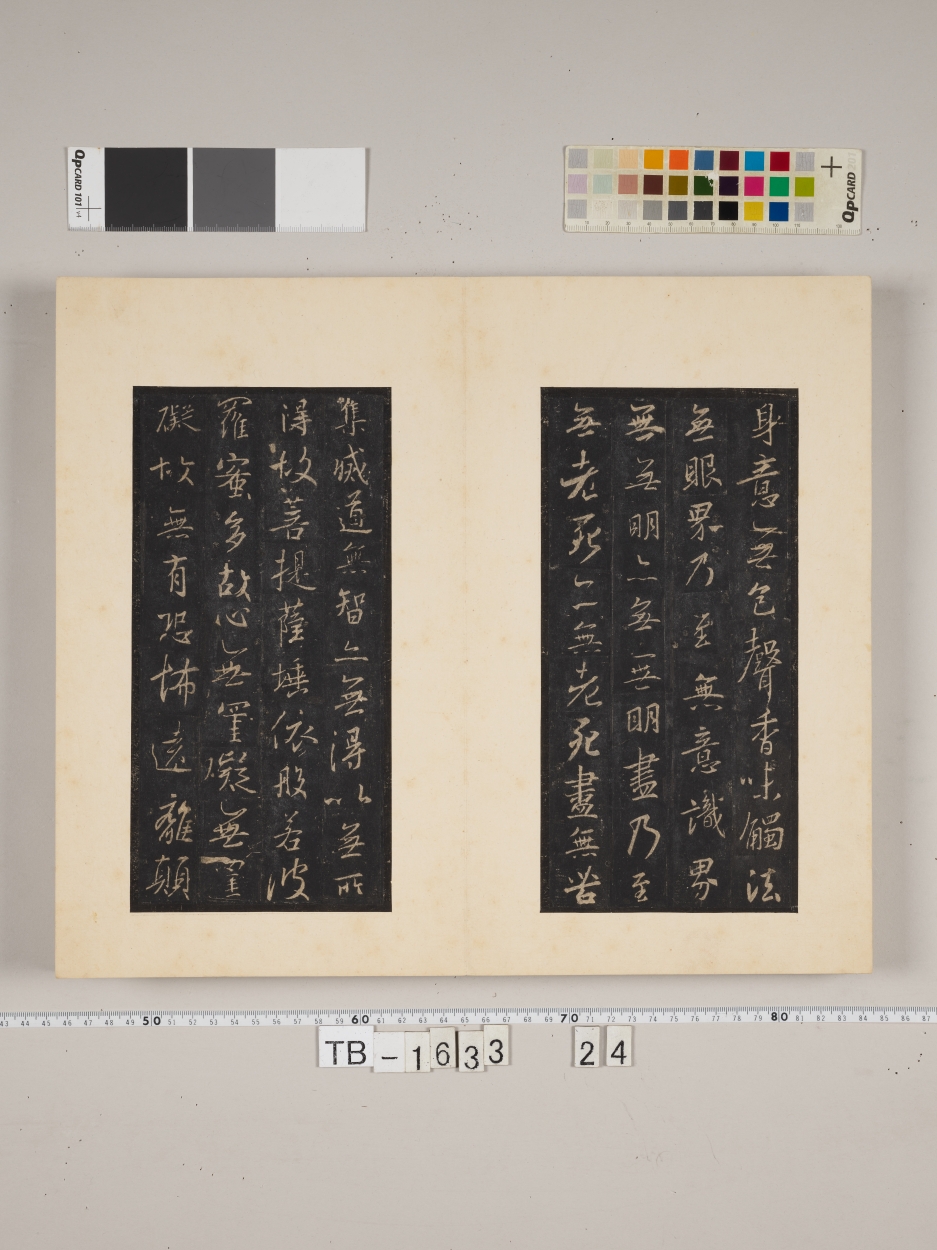 QPCARD 101
QPCARD 201
身意無色聲香味觸法
無眼界乃至無意識界
無無明亦無無明盡乃至
無老死亦無老死盡無苦
集滅道無智亦無得以無所
得故菩提薩埵依般若波
羅蜜多故心無罣礙無罣
礙故無有恐怖遠離顛
43 44 45 46 47 48 49 50 51 52 53 54 55 56 57 58 59 60 61 62 63 64 65 66 67 68 69 70 71 72 73 74 75 76 77 78 79 80 81 82 83 84 85 86 87
TB-1633 24